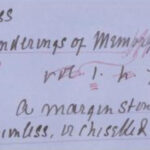 ss
nderings of Memory
vol. 1. h
a margin ston
imless, or chiselled